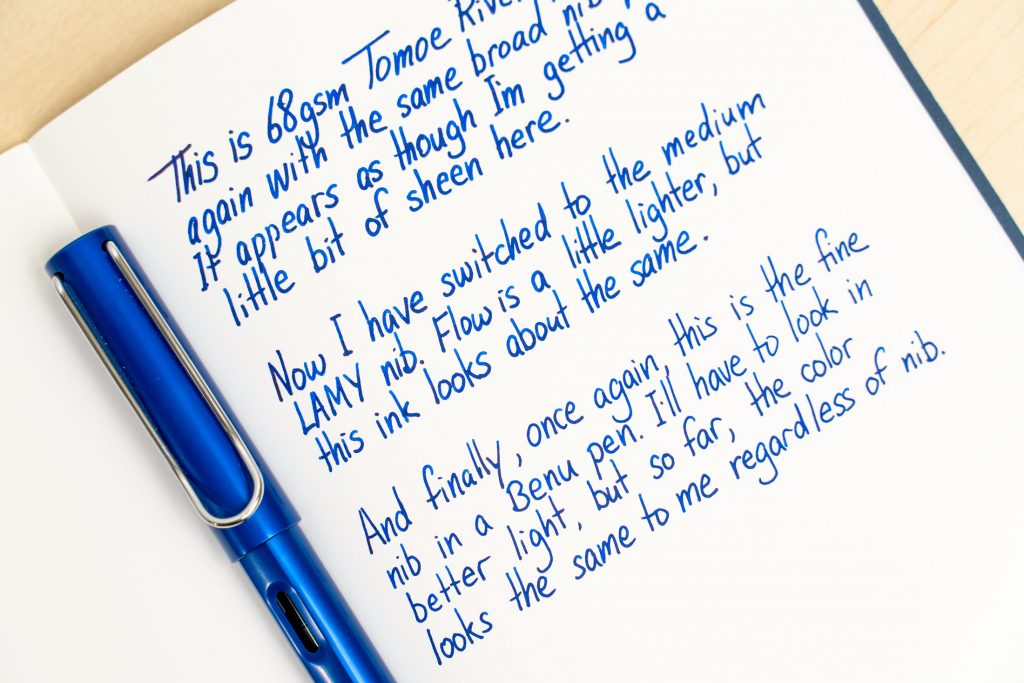 This is 68gsm Tomoe River
again with the same broad nib
It appears as though I'm getting a
little bit of sheen here.
Now I have switched to the medium
LAMY nib. Flow is a little lighter, but
this ink looks about the same.
And finally, once again, this is the fine
nib in a Benu pen. I'll have to look in
better light, but so far, the color
looks the same to me regardless of nib.